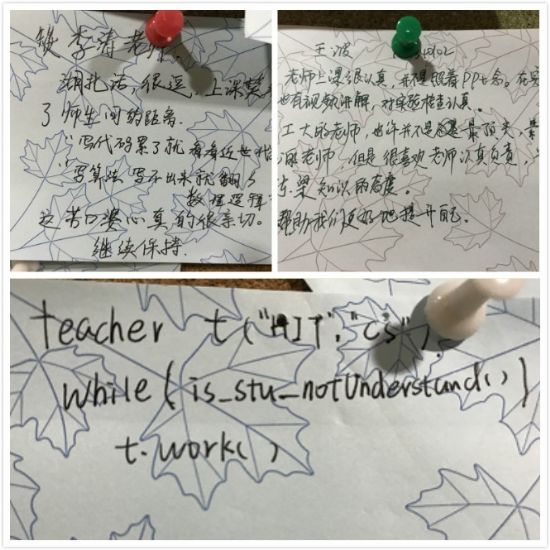 致李涛老师
很扎活，很逗，上课禁
了师生间的距离.
"写代码累了就看看近世代
"写算法写不出来就翻翻
数理逻辑
这苦口婆心真的很亲切。
继续保持.
老师上课很认真，并不是照着PPt念。在
也有视频讲解，对实验检查认真。
工大的老师，也许并不是最阳光、最
派老师，但是很喜欢老师认真负责，
知识的态度。
帮助我们更好地提升自己.
teacher t("HIT","CS");
while(is_stu_notUnderstand())
t.work()